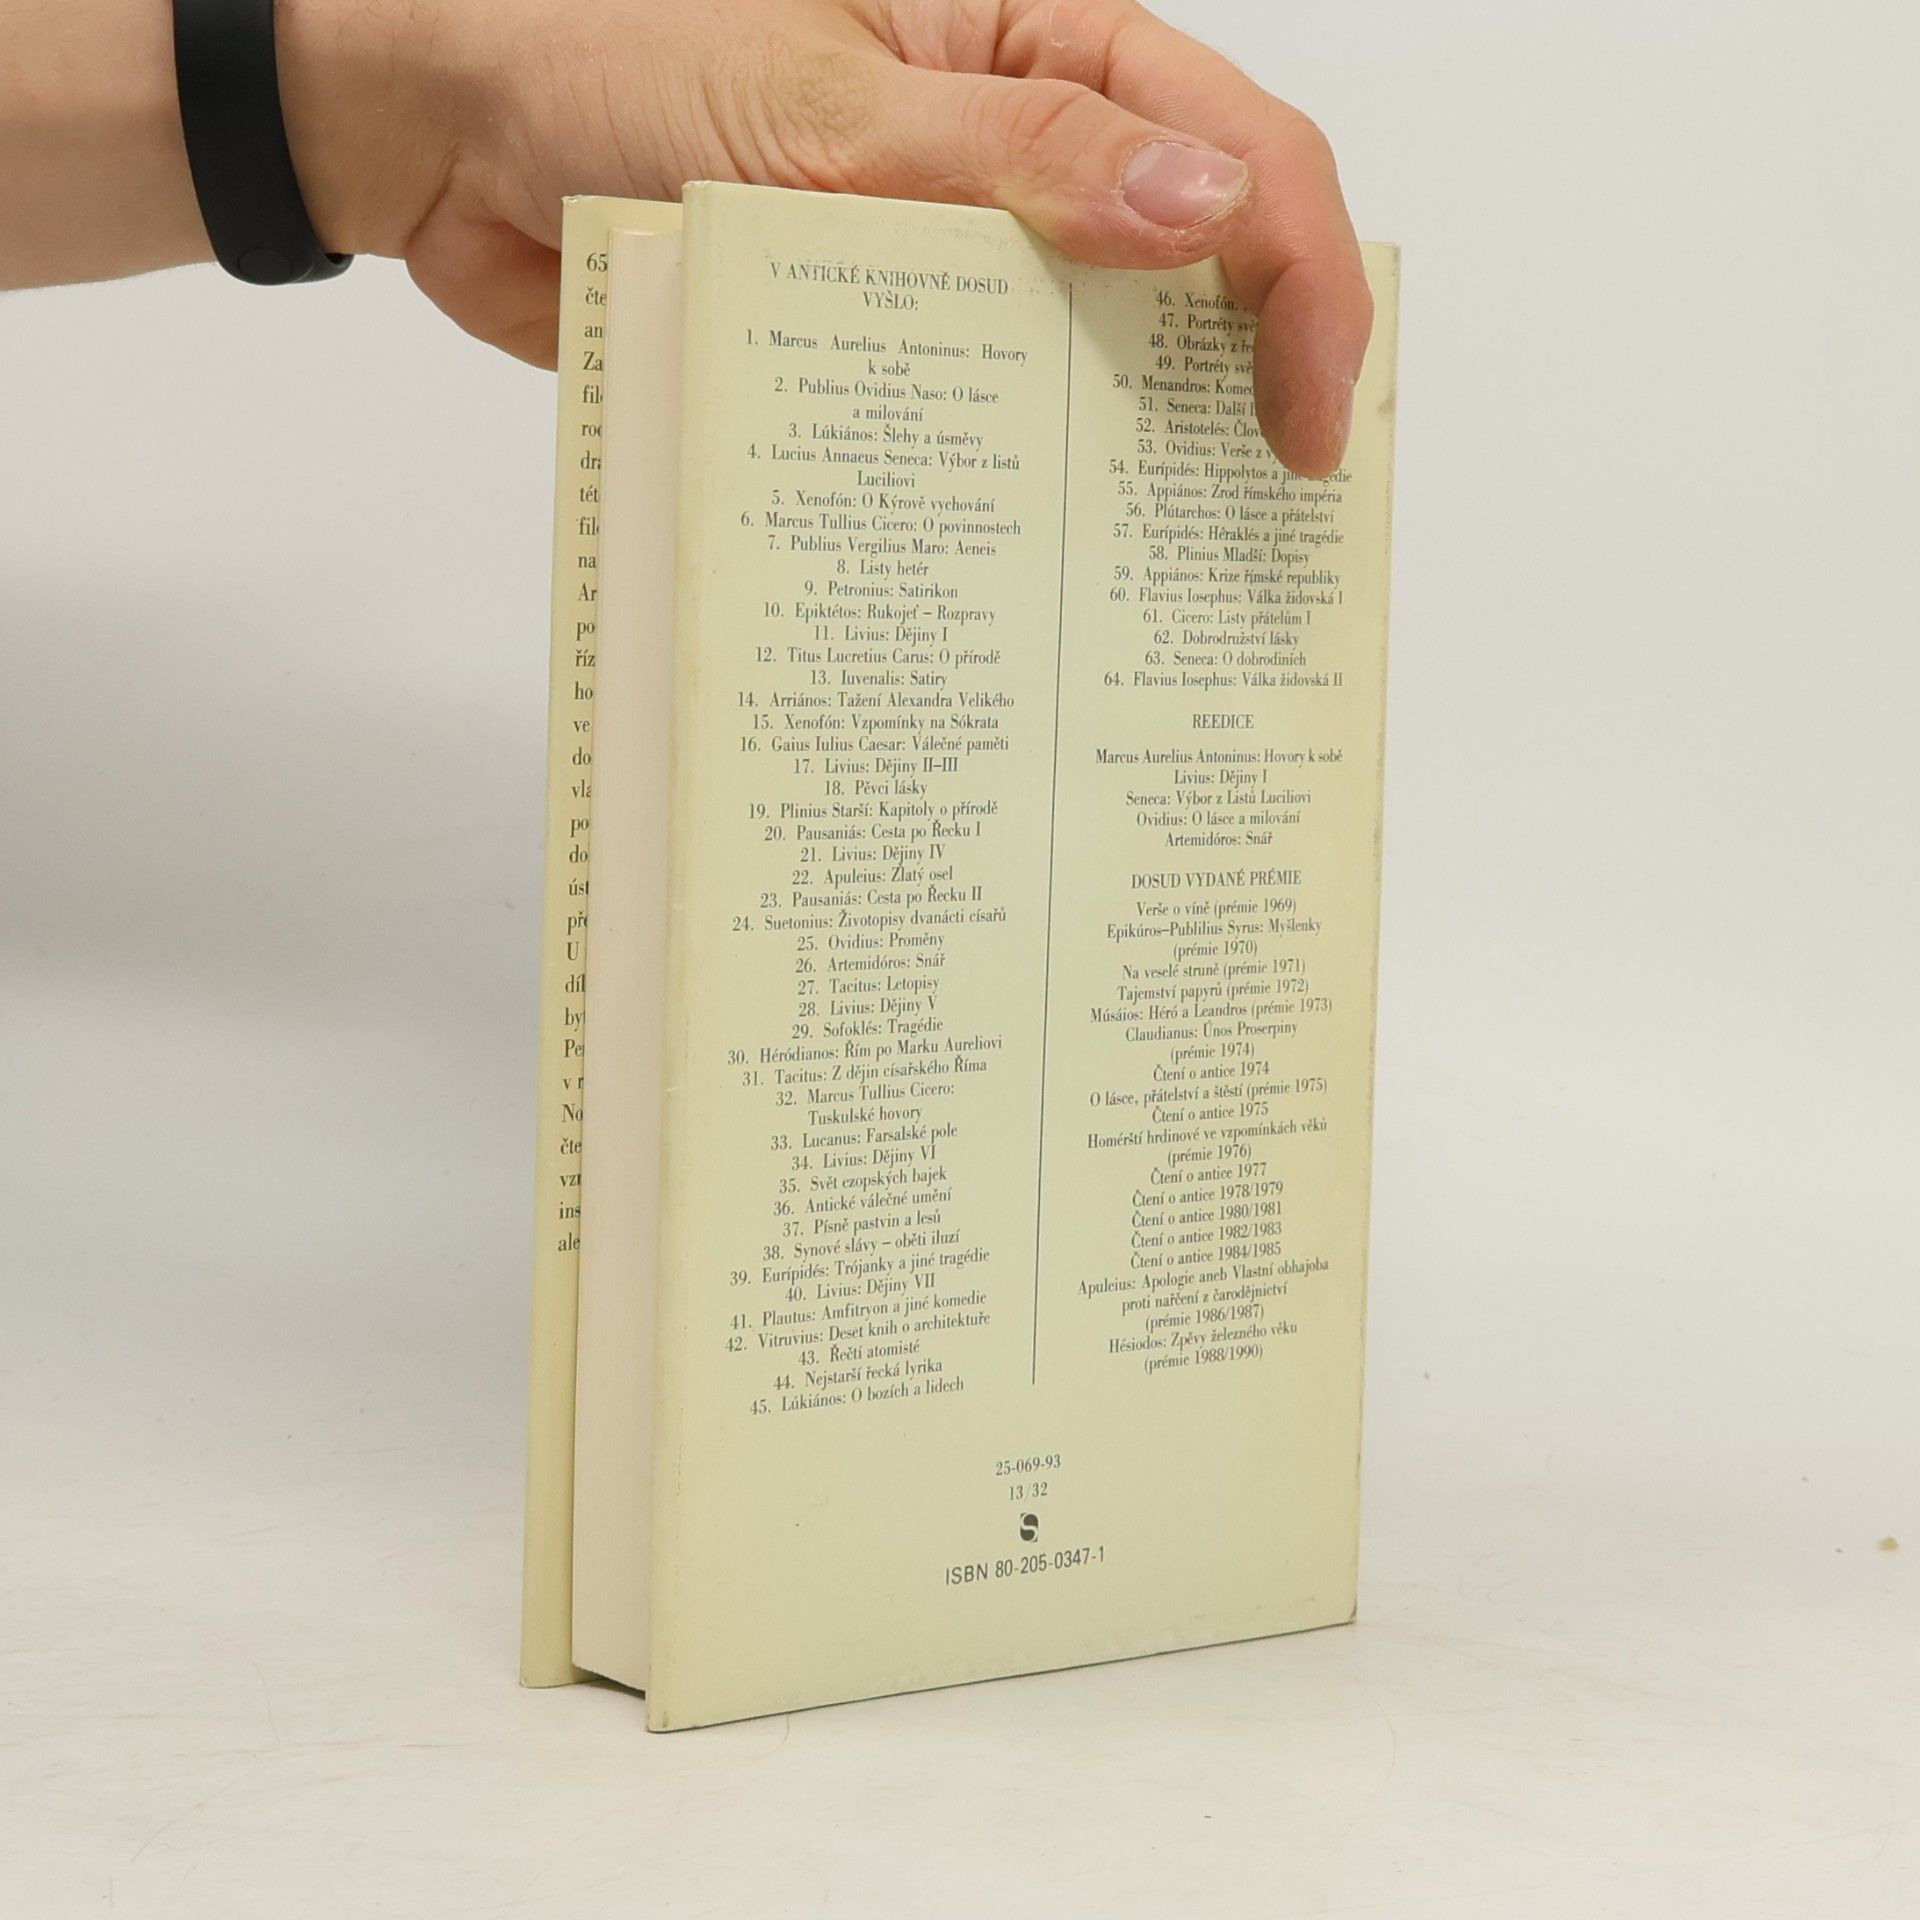 65
čte
an
Za
fil
dra
tét
filo
na
Ar
po
říz
ho
ve
do
vla
po
do
úst
pře
U
díl
byt
Per
v r
No
čte
vzn
ins
ale
V ANTICKÉ KNIHOVNĚ DOSUD
VYŠLO:
1. Marcus Aurelius Antoninus: Hovory
k sobě
2. Publius Ovidius Naso: O lásce
a milování
3. Lúkiános: Šlehy a úsměvy
4. Lucius Annaeus Seneca: Výbor z listů
Luciliovi
5. Xenofón: O Kýrově vychování
6. Marcus Tullius Cicero: O povinnostech
7. Publius Vergilius Maro: Aeneis
8. Listy hetér
9. Petronius: Satirikon
10. Epiktétos: Rukojeť – Rozpravy
11. Livius: Dějiny I
12. Titus Lucretius Carus: O přírodě
13. Iuvenalis: Satiry
14. Arriános: Tažení Alexandra Velikého
15. Xenofón: Vzpomínky na Sókrata
16. Gaius Iulius Caesar: Válečné paměti
17. Livius: Dějiny II–III
18. Pěvci lásky
19. Plinius Starší: Kapitoly o přírodě
20. Pausaniás: Cesta po Řecku I
21. Livius: Dějiny IV
22. Apuleius: Zlatý osel
23. Pausaniás: Cesta po Řecku II
24. Suetonius: Životopisy dvanácti císařů
25. Ovidius: Proměny
26. Artemidóros: Snář
27. Tacitus: Letopisy
28. Livius: Dějiny V
29. Sofoklés: Tragédie
30. Héródianos: Řím po Marku Aureliovi
31. Tacitus: Z dějin císařského Říma
32. Marcus Tullius Cicero:
Tuskulské hovory
33. Lucanus: Farsalské pole
34. Livius: Dějiny VI
35. Svět ezopských bajek
36. Antické válečné umění
37. Písně pastvin a lesů
38. Synové slávy – oběti iluzí
39. Eurípidés: Trójanky a jiné tragédie
40. Livius: Dějiny VII
41. Plautus: Amfitryon a jiné komedie
42. Vitruvius: Deset knih o architektuře
43. Řečtí atomisté
44. Nejstarší řecká lyrika
45. Lúkiános: O bozích a lidech
46. Xenofón:
47. Portréty svě
48. Obrázky z ře
49. Portréty svě
50. Menandros: Komed
51. Seneca: Další l
52. Aristotelés: Člov
53. Ovidius: Verše z v
54. Eurípidés: Hippolytos a jiné tragédie
55. Appiános: Zrod římského impéria
56. Plútarchos: O lásce a přátelství
57. Eurípidés: Héraklés a jiné tragédie
58. Plinius Mladší: Dopisy
59. Appiános: Krize římské republiky
60. Flavius Iosephus: Válka židovská I
61. Cicero: Listy přátelům I
62. Dobrodružství lásky
63. Seneca: O dobrodiních
64. Flavius Iosephus: Válka židovská II
REEDICE
Marcus Aurelius Antoninus: Hovory k sobě
Livius: Dějiny I
Seneca: Výbor z Listů Luciliovi
Ovidius: O lásce a milování
Artemidóros: Snář
DOSUD VYDANÉ PRÉMIE
Verše o víně (prémie 1969)
Epikúros–Publilius Syrus: Myšlenky
(prémie 1970)
Na veselé struně (prémie 1971)
Tajemství papyrů (prémie 1972)
Músáios: Héró a Leandros (prémie 1973)
Claudianus: Únos Proserpiny
(prémie 1974)
Čtení o antice 1974
O lásce, přátelství a štěstí (prémie 1975)
Čtení o antice 1975
Homérští hrdinové ve vzpomínkách věků
(prémie 1976)
Čtení o antice 1977
Čtení o antice 1978/1979
Čtení o antice 1980/1981
Čtení o antice 1982/1983
Čtení o antice 1984/1985
Apuleius: Apologie aneb Vlastní obhajoba
proti nařčení z čarodějnictví
(prémie 1986/1987)
Hésiodos: Zpěvy železného věku
(prémie 1988/1990)
25-069-93
13/32
S
ISBN 80-205-0347-1